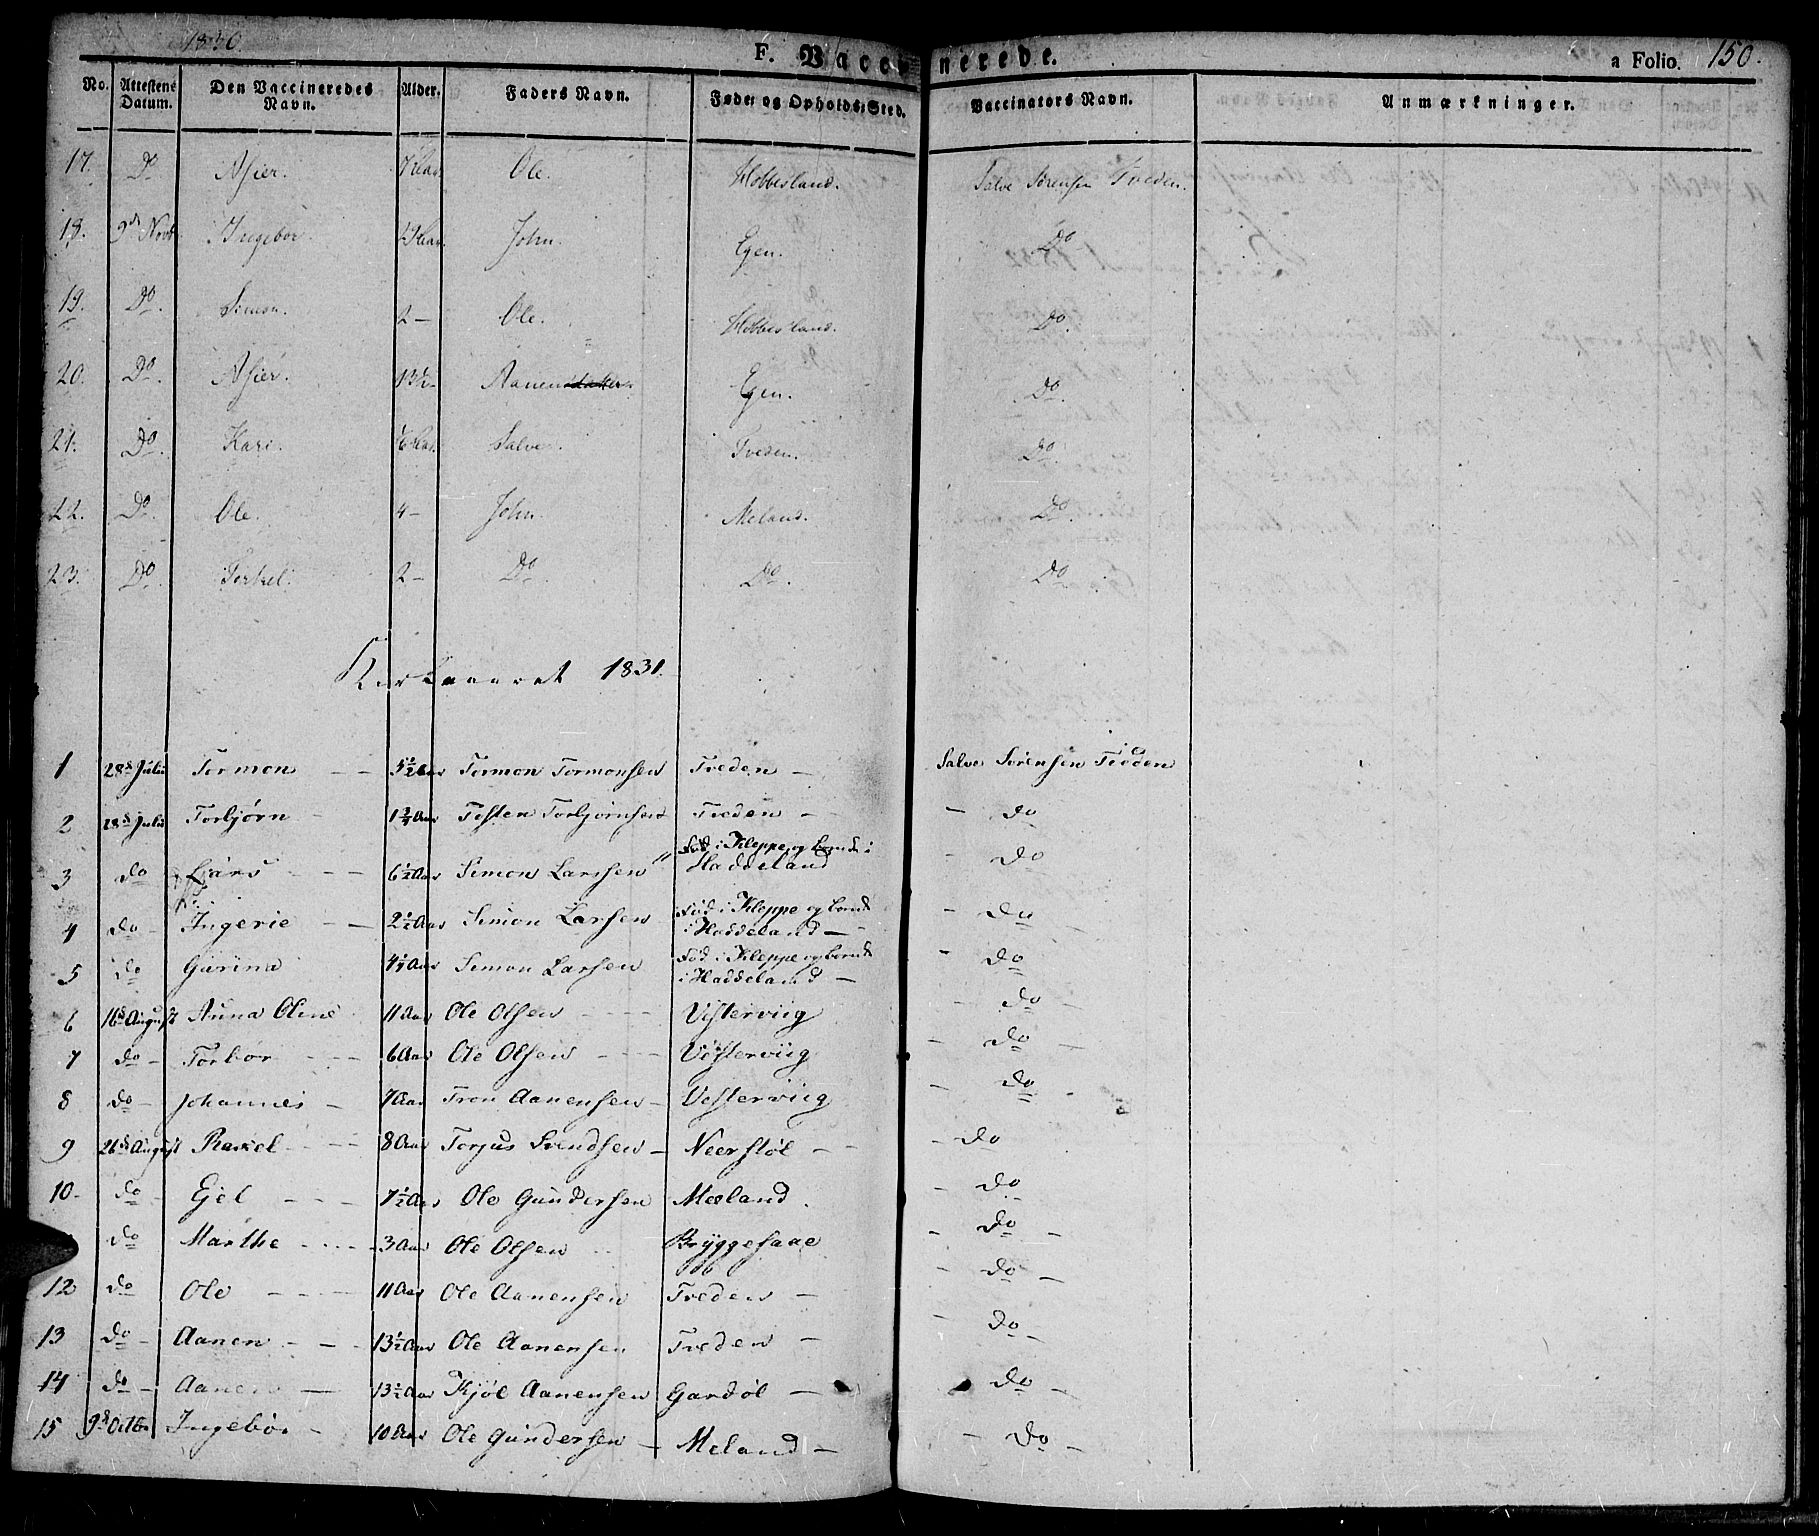 1830.
F. Vaccinerede.
a Folio. 150.
No. Attestens Datum. Den Vaccineredes Navn. Alder. Faders Navn. Føde- og Opholds-Sted. Vaccinators Navn. Anmærkninger.
17. Do Asier. Ole. Hobbesland. Salve Sørensen Tveden.
18. 9de Novbr Ingebor. John. Egen. Do
19. Do. Simon. 2 — Ole. Hobbesland. Do.
20. Do. Asier. 13½ — Aanen Egen. Do.
21. Do. Kari. Salve. Tveden. Do.
22. Do. Ole. 4 — John. Meland. Do.
23. Do. Terkel. 2 — Do. Do. Do.
Kirkeaaret 1831.
1 28de Julii Tormon — — 5½ Aar Tormon Tormonsen Tveden — Salve Sørensen Tveden
2 28de Julii Torbjørn — 1¾ Aar Testen Torbjørnsen Tveden — — do
3 do Lars — — — 6½ Aar Simon Larssen Fød i Kleppe og boende i Haddeland — do
4 do — Ingerie — — 2½ Aar Simon Larsen Fød i Kleppe og boende i Haddeland — — do
5 do Gurina 4¼ Aar Simon Larsen Fød i Kleppe og boende i Haddeland — — do
6 16de August Anna Oline 11 Aar Ole Olsen — — — Vesterviig — do —
7 do — Torbor — — — 6 Aar Ole Olsen — — — Vesterviig — do —
8 do — Johannes — 7 Aar Tron Aanensen — Vesterviig — do
9 26de August Rakel — — — 8 Aar Torjus Svendsen — Neerstøl — — do
10. do — Ejel — — — 7½ Aar Ole Gundersen Mæland. — do
do Marthe — — — 3 Aar Ole Olsen Bryggesaae — do —
12 do Ole — — — 11 Aar Ole Aanensen Tveden — — do —
13 do — Aanen — — — 13½ Aar Ole Aanensen Tveden — — do —
14 do — Aanen — 13½ Aar Kjøl Aanensen Gardøl — do —
15 9de Octbr Ingebør — 10 Aar Ole Gundersen — Meland — — do —